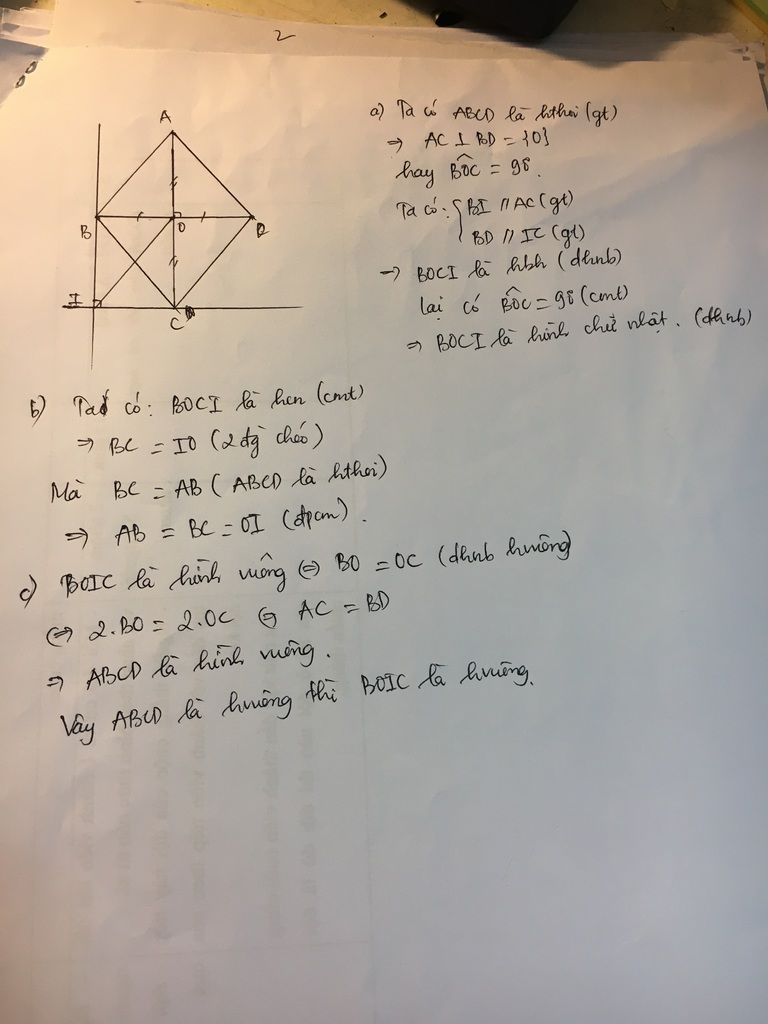 2
A
B
O
D
I
C
a) Ta có ABCD là hthoi (gt)
⇒ AC ⊥ BD = {O}
hay BÔC = 90°.
Ta có: { BI // AC (gt)
BD // IC (gt)
→ BOCI là hbh (dhnb)
lại có BÔC = 90° (cmt)
⇒ BOCI là hình chữ nhật. (dhnb)
b) Ta có: BOCI là hcn (cmt)
⇒ BC = IO (2 đg chéo)
Mà BC = AB (ABCD là hthoi)
⇒ AB = BC = OI (đpcm).
c) BOIC là hình vuông ⇔ BO = OC (dhnb hvuông)
⇔ 2.BO = 2.OC ⇔ AC = BD
⇒ ABCD là hình vuông.
Vậy ABCD là hvuông thì BOIC là hvuông.